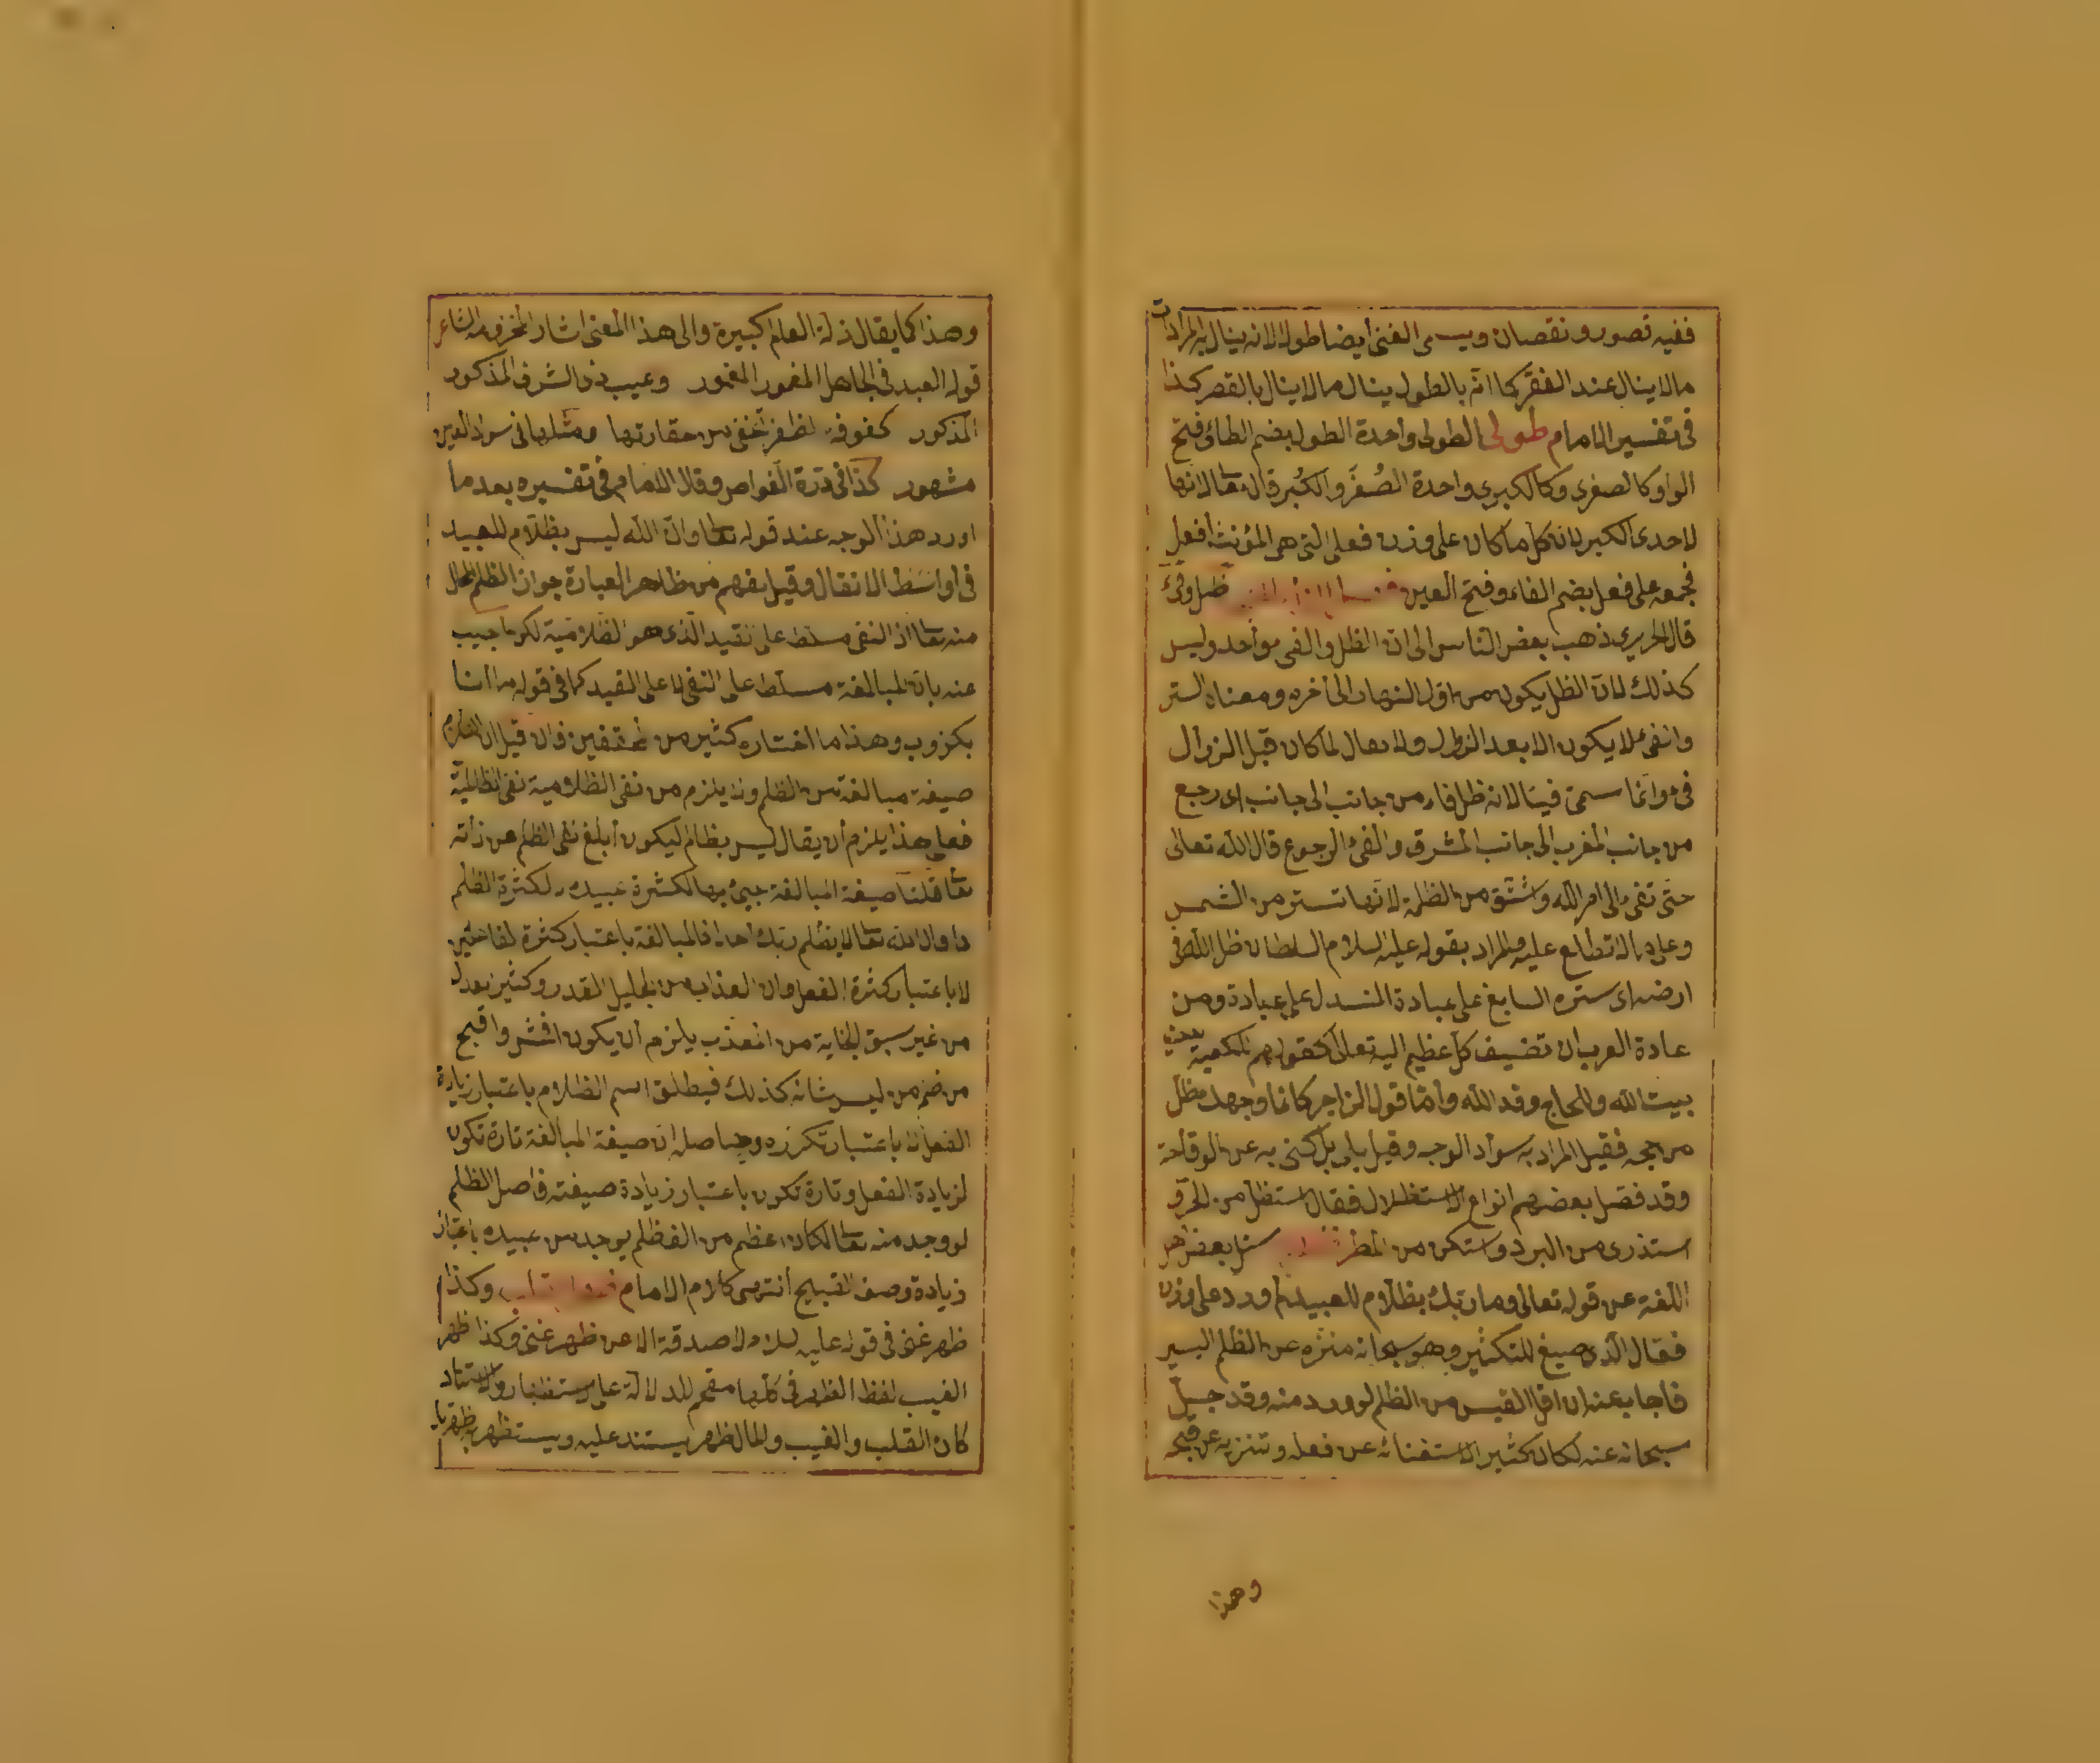 ففيه قصور ونقصان ويسمى الغنى أيضا طولا لانه ينال به المرادات
مالا ينال عند الفقر كما انه بالطول ينال مالا ينال بالقصر كذا
فى تفسير الامام طولى الطولى واحدة الطول بضم الطاء وفتح
الواو كالصغرى وكالكبرى واحدة الصُغَر والكُبر قال تعا انها
لاحدى الكبر لان كل ما كان على وزن فعلى التى هى المؤنث أفعل
فجمعه على فعل بضم الفاء وفتح العين ظل وفئ
قال الحريرى ذهب بعض الناس الى ان الظل والفى واحد وليس
كذلك لان الظل يكون من اول النهار الى آخره ومعناه الستر
والفئ لا يكون الا بعد الزوال ولا يقال لما كان قبل الزوال
فئ وانما سمى فيئا لانه ظل فاء من جانب الى جانب اى رجع
من جانب المغرب الى جانب المشرق والفئ الرجوع قال الله تعالى
حتى تفئ الى امر الله واشتق من الظلمة لانها تستر من الشمس
وعلى بالاتطلع عليه والمراد بقوله عليه السلام السلطان ظل الله فى
ارضه اى ستره السابغ على عباده المنسدل على عبادة ومن
عادة العرب ان تضيف كل عظيم اليه تعالى كقولهم للكعبة
بيت الله وللحاج وفد الله وأما قول الزاجر كانما وجهك مظل
من حجر فقيل المراد به سواد الوجه وقيل بل كنى به عن الوقاحة
وقد فصل بعضهم انواع الاستظلال فقال استظل من الحر و
استذرى من البرد واستكن من المطر سئل بعض اهل
اللغة عن قوله تعالى وما ربك بظلام للعبيد لم ورد على وزن
فقال الذى صيغ للتكثير وهو سبحانه منزه عن الظلم اليسير
فاجاب عنه ان اقل القليل من الظلم لو ورد منه وقد جل
سبحانه عنه لكان كثيرا لاستغنائه عن فعله وتنزيهه عن قبحه
وهذا
وهذا كما يقال زلة العالم كبيرة والى هذا المعنى اشار المخزومى الشاعر
قوله العيب فى الجاهل المغمور المغمور وعيب ذى الشرف المذكور
المذكور كفوفة لظفر تخفى من حقارتها ومثلها فى سواد العين
مشهور كذا فى درة الغواص وقال الامام فى تفسيره بعد ما
اورد هذا الوجه عند قوله تعا وان الله ليس بظلام للعبيد
فى اواسط الانفال وقيل يفهم من ظاهر العبارة جواز الظلم
منه تعا اذ النفى مسلط على القيد الذى هو الظلامية لكن اجيب
عنه بان المبالغة مسلط على النفى لا على القيد كما فى قوله ما انا
بكذوب وهذا ما اختاره كثير من المحققين فان قيل ان الظلام
صيغة مبالغة من الظلم ولا يلزم من نفى الظلامية نفى الظالمية
فعلى هذا يلزم أن يقال ليس بظالم ليكون أبلغ نفى الظلم عن ذاته
تعا قلنا صيغة المبالغة جيئ بها لكثرة عبيده لا لكثرة الظلم
وقال الله تعا لا يظلم ربك احدا فالمبالغة باعتبار كثرة الفاعلين
لا باعتبار كثرة الفعل وان العذاب من الجليل القدر وكثير العدل
من غير سبق الجناية من المعذب يلزم أن يكون افحش واقبح
من ليس شانه كذلك فيطلق اسم الظلام باعتبار زيادة
الفعل لا باعتبار تكرره وحاصله ان صيغة المبالغة تارة تكون
لزيادة الفعل وتارة تكون باعتبار زيادة صيغته فاصل الظلم
لو وجد منه تعا لكان اعظم من الف ظلم يوجد من عبيده باعتبار
زيادة وصف القبيح انتهى كلام الامام وكذا
ظهر غنى فى قوله عليه السلام لا صدقة الا عن ظهر غنى وكذا ظهر
الغيب لفظ الظهر فى كلها مقحم للدلالة على استظهار والاستناد
كان القلب والغيب والمال ظهر يستند عليه ويستظهر به